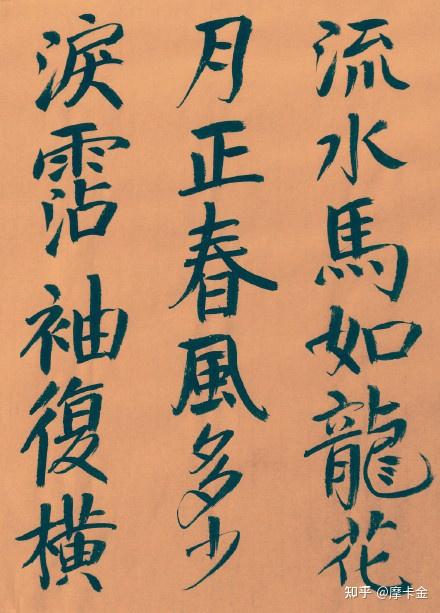 流水馬如龍花
月正春風多少
淚霑袖復橫
知乎 @摩卡金